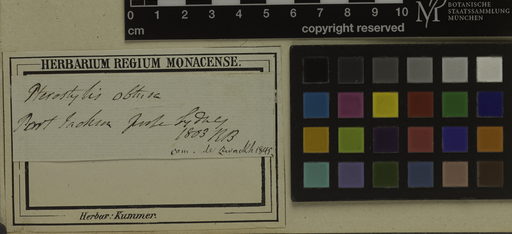 0 1 2 3 4 5 6 7 8 9 10
cm
copyright reserved
BOTANISCHE
STAATSSAMMLUNG
MÜNCHEN
HERBARIUM REGIUM MONACENSE.
Pterostylis obtusa
Port Jackson prope Sydney
1803 RB
com. de 1845,
Herbar: Kummer.